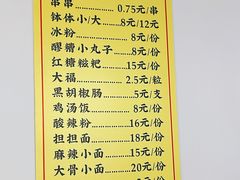 串串……0.75元/串
钵体小/大…8元/12元
冰粉……8元/份
醪糟小丸子…8元/份
红糖糍粑……15元/份
大福……2.5元/粒
黑胡椒肠……5元/支
鸡汤饭……8元/份
酸辣粉……16元/份
担担面……18元/份
麻辣小面……15元/份
大骨小面……20元/份